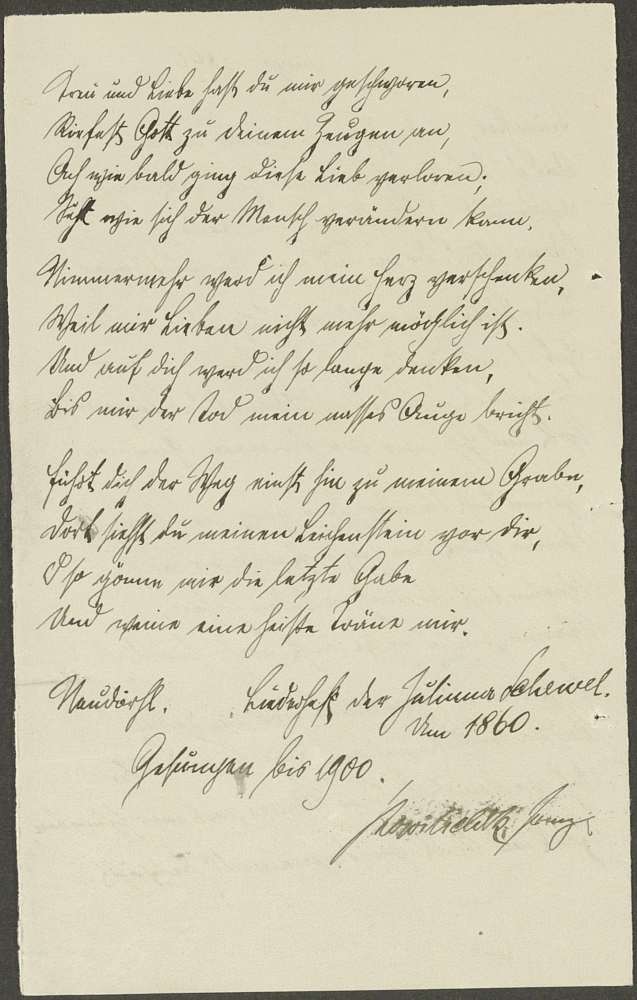 Treu und Liebe hast du mir geschworen,
Riefest Gott zu deinem Zeugen an,
Ach wie bald ging diese Lieb verloren;
Seht wie sich der Mensch verändern kann.
Nimmermehr werd ich mein Herz verschenken,
Weil mir Lieben nicht mehr möglich ist.
Und auf dich werd ich so lange denken,
Bis mir der Tod mein nasses Auge bricht.
Führt dich der Weg einst hin zu meinem Grabe,
Dort siehst du meinen Leichenstein vor dir,
O so gönne mir die letzte Gabe
Und weine eine heiße Träne mir.
Neudörfl. Liederheft der Julianna Schewel.
Um 1860.
Gesungen bis 1900.